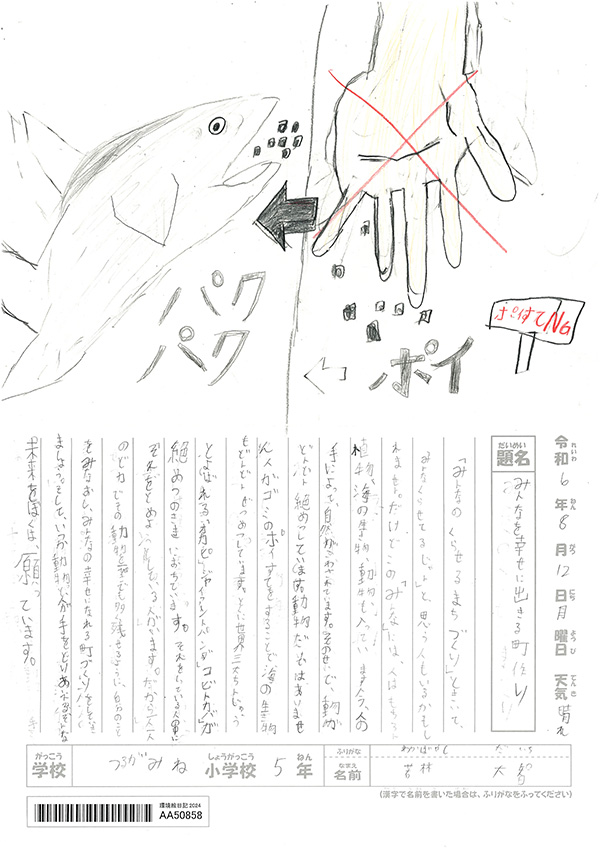 パク
パク
ポイ
ポイすてNG
令和6年8月12日月曜日 天気 晴れ
れいわ ねん がつ にち げつ ようび てんき
だいめい
題名
みんなを幸せに出きる町作り
「みんなのくらせるまちづくり」とよこいて、
みんなくらせてるじゃんと思う人もいるかもし
れません。だけどこの「みんな」には、人はもちろん
植物、海の生き物、動物も入っています。今、人の
手によって、自然がこわされています。そのせいで、動物が
どんどん絶めつしています。動物だけではありませ
ん。人がゴミのポイすてをすることで海の生き物
もどんどんぜつめつしています。とくに世界三大ちんじゅう
とよばれる「オカピ」「ジャイアントパンダ」「コビトカバ」が
絶めつのききにおちています。それをしている人間に
それをとめようとしている人がいます。だから一人一人
のどりょくで動物を一ぴきでも多く残せるように、自分のこと
をみなおし、みんなの幸せになれる町づくりをしていき
ましょう。そして、いつか動物と人が手をとりあえるような
未来をぼくは、願っています。
がっこう
学校
つるがみね
しょうがっこう
小学校
5
ねん
年
ふりがな
わかばやし だいち
なまえ
名前
若林 大智
(漢字で名前を書いた場合は、ふりがなをふってください)
環境絵日記 2024
AA50858